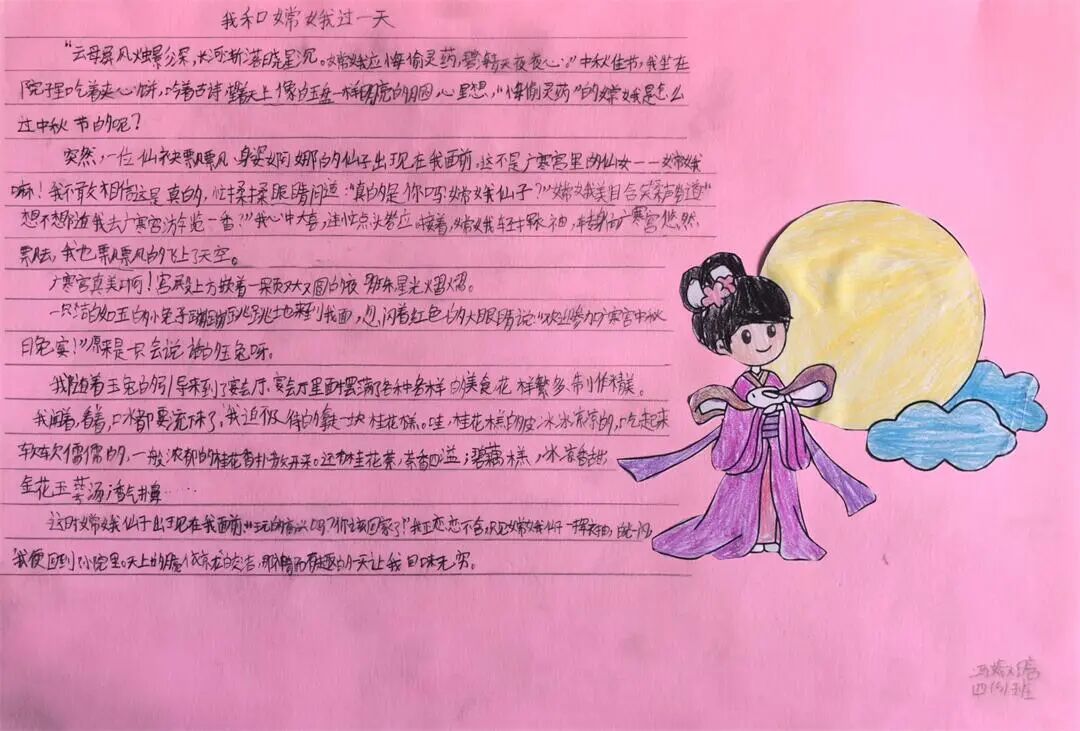 我和嫦娥过一天
“云母屏风烛影深，长河渐落晓星沉。嫦娥应悔偷灵药，碧海青天夜夜心。”中秋佳节，我坐在
院子里吃着夹心饼，吟着古诗，望着天上像白玉盘一样明亮的月圆，心里想，“悔偷灵药”的嫦娥是怎么
过中秋节的呢？
突然，一位仙袂飘飘，身姿婀娜的仙子出现在我面前。这不是广寒宫里的仙女——嫦娥
嘛！我不敢相信这是真的，忙揉揉眼睛问道：“真的是你吗？嫦娥仙子？”嫦娥美目含笑，声道“
想不想随我去广寒宫游览一番？”我心中大喜，连忙点头答应。接着，嫦娥轻挥衣袖，转身向广寒宫悠然
飘去，我也飘飘的飞上了天空。
广寒宫真美啊！宫殿上方嵌着一颗又大又圆的夜明珠星光熠熠。
一只洁白如玉的小兔子蹦蹦跳跳地来到我面，忽闪着红色的大眼睛说：“欢迎参加广寒宫中秋
日宴！”原来是一只会说话的玉兔呀。
我随着玉兔的引导来到了宴会厅，宴会厅里面摆满了各种各样的美食，花样繁多，制作精美。
我闻着，看着，口水都要流下来了，我迫不及待的拿一块桂花糕。哇，桂花糕的皮冰冰凉凉的，吃起来
软软儒儒的，一般浓郁的桂花香扑散开来。还有桂花茶，茶香四溢；碧藕糕，冰凉香甜
金花玉荚汤，香气扑鼻……
这时嫦娥仙子出现在我面前：“玩的高兴吗？你该回家了！”我正恋恋不舍，只见嫦娥仙子一挥衣袖，
我便回到小院里。天上的月亮依旧的皎洁，那有趣的一天让我回味无穷。
四(3)班